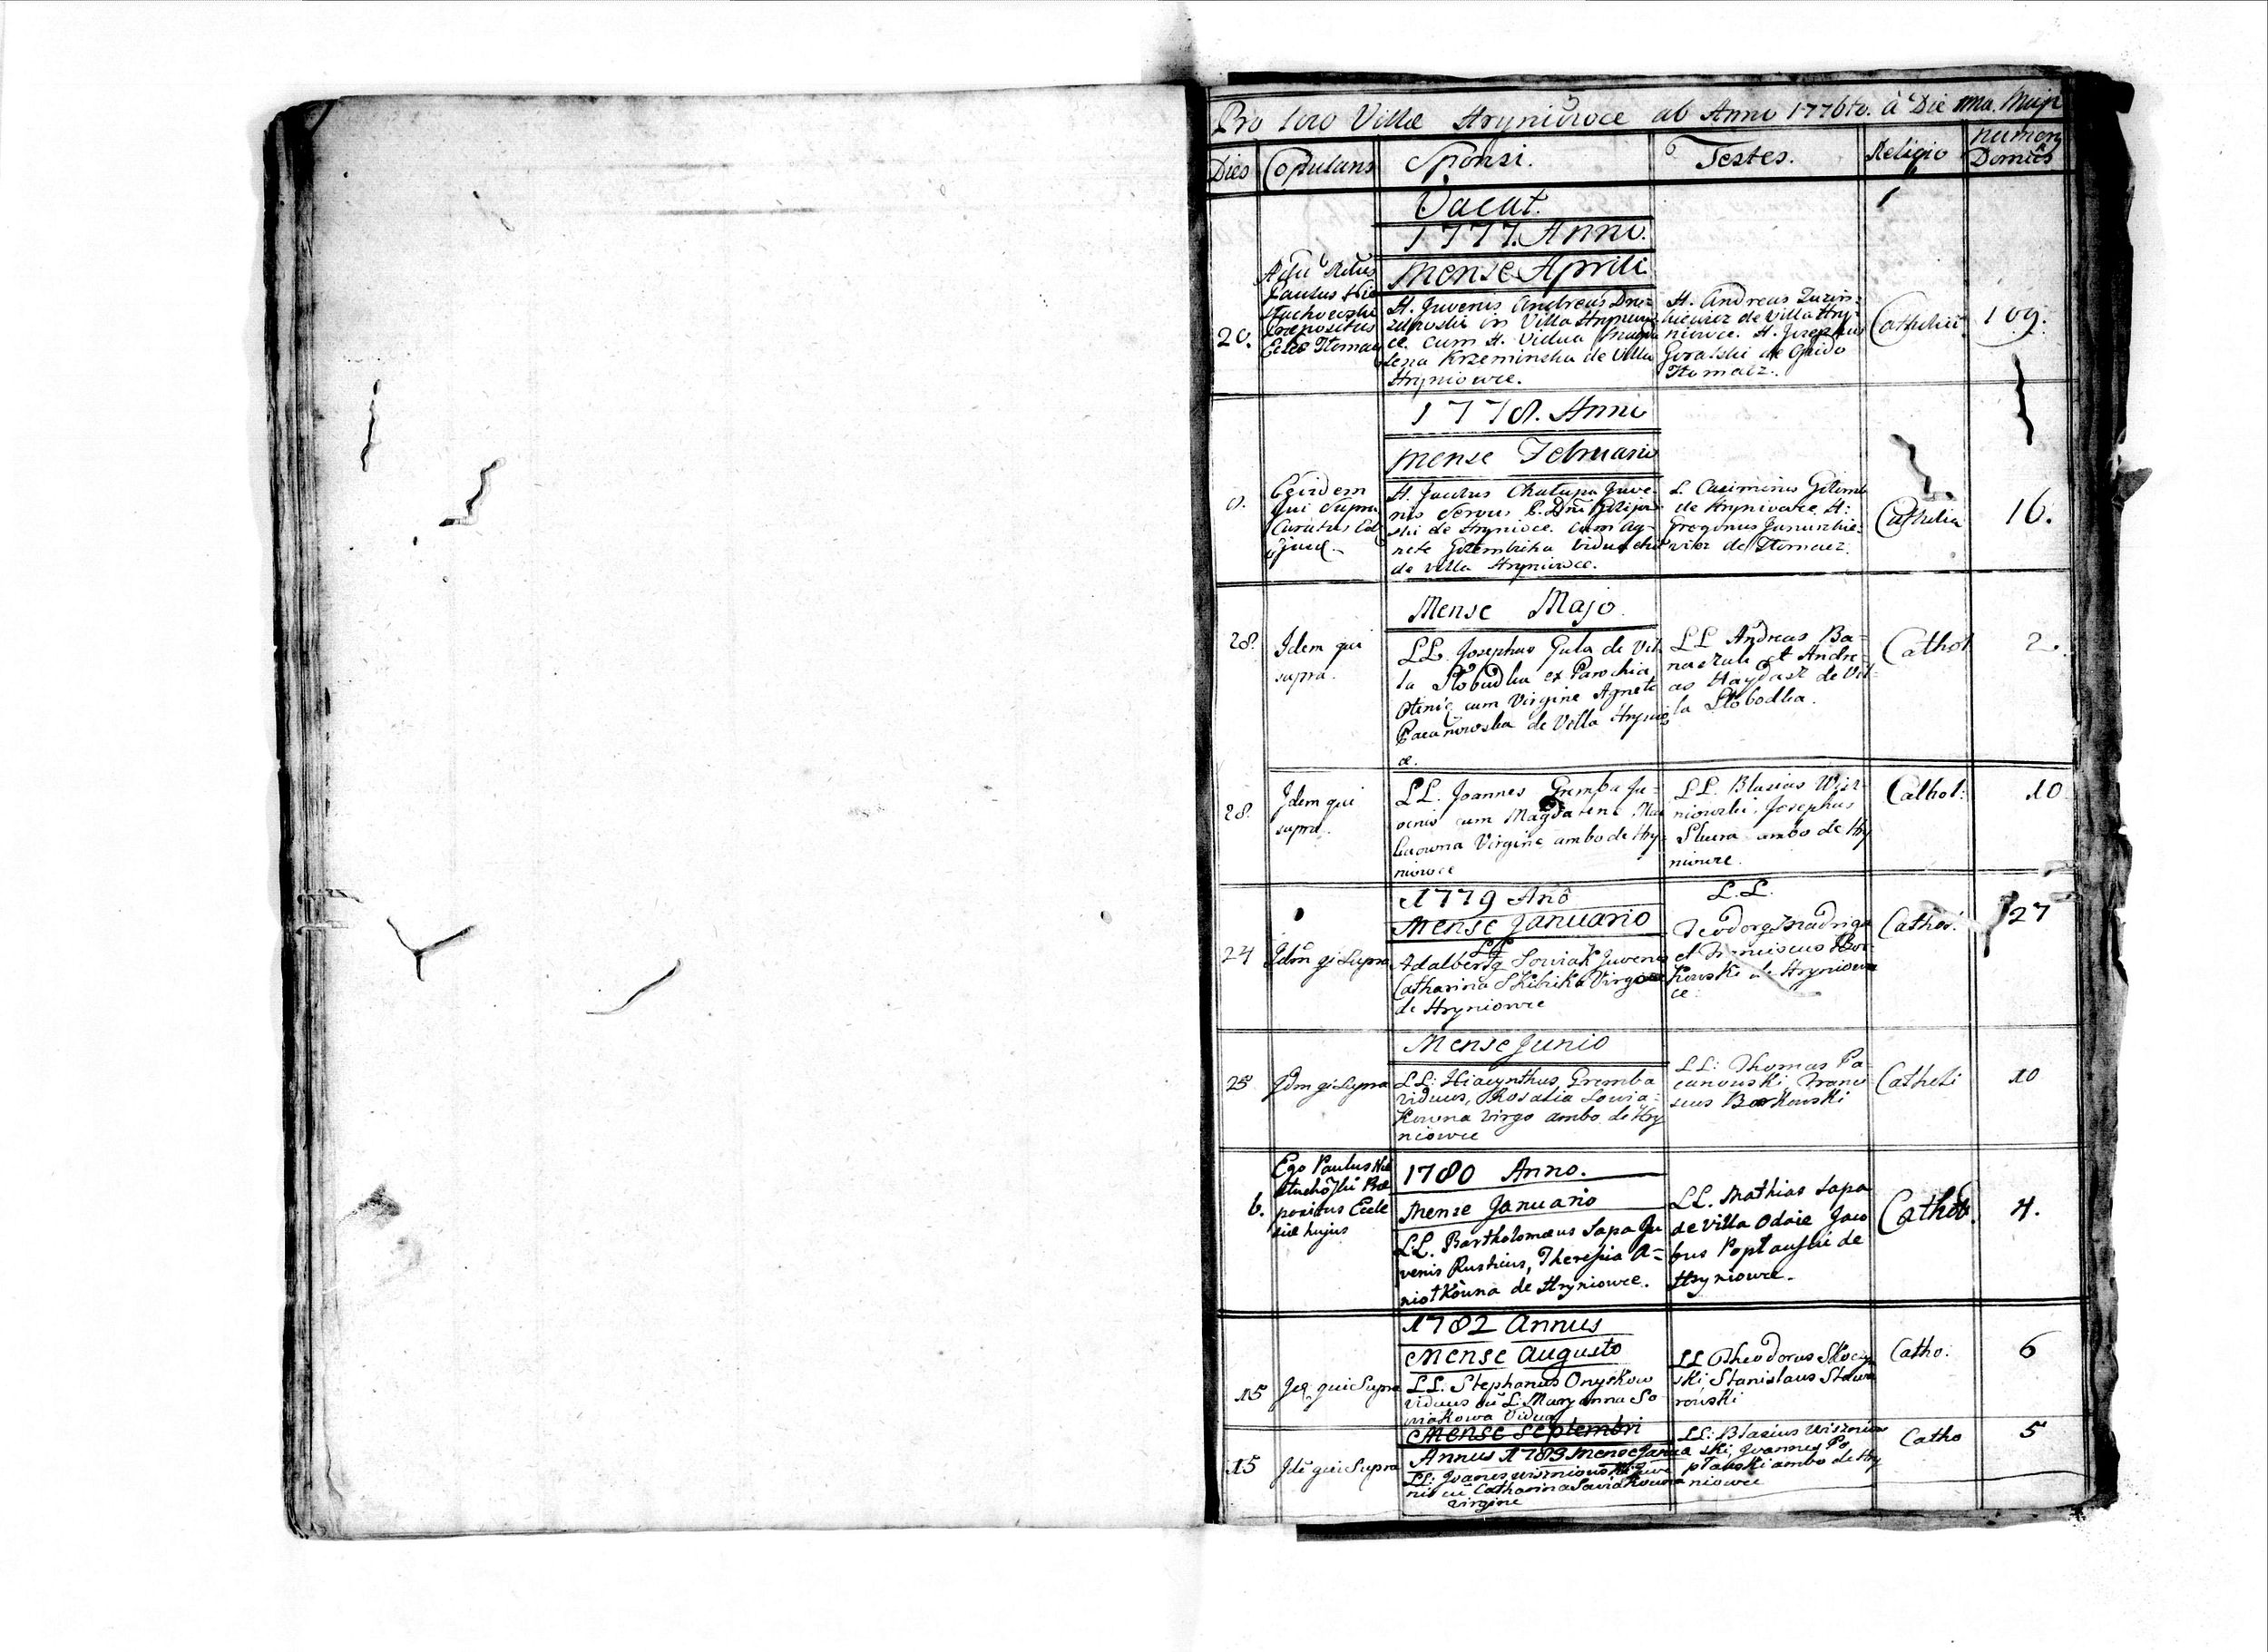 Pro loco Villæ Hryniovce ab Anno 1776to. à Die 1ma. Maji
Dies Copulans Sponsi. Testes. Religio Numerq Domûs
Vacat.
1777. Anni.
Mense Aprili
20.
Paulus
Præpositus
H. Juvenis Andreas
in Villa Hryniow
ce. cum H. Vidua Magda
lena Krzeminska de Villa
Hryniowce.
H. Andreas
de Villa Hry-
niowce. H. Josephus
Goralski de Opido
Tłomacz.
Catholici
109.
1778. Anni
Mense Februario
8.
qui Supra
Curatus
H. Paulus Chałupa Juve-
nis Servus
ski de Hryniovce. cum Ag-
nete Gozembicha Vidua
de Villa Hryniovce.
L. Casimirus
de Hryniovce. H:
Gregorius
de Tłomacz.
Catholici
16.
Mense Majo
28.
Idem qui
supra.
LL. Josephus Gula de Vil-
la Słobudka ex Parochia
cum Virgine Agnete
Pacanowska de Villa Hryniow
ce.
LL Andreas Ba-
naszak et Andre-
as Haydasz de Vil-
la Słobodka.
Cathol
2.
28.
Idem qui
supra.
LL. Joannes Gremba Ju-
venis cum Magdalena
Virgine ambo de Hry-
niowce
LL. Blasius Wisz-
niowski. Josephus
Skura ambo de Hry
niowce.
Cathol:
10
1779 Anô
Mense Januario
24
Idm qi Supra
LL
Adalbertq Sowiak Juvenis
Catharina Skibika Virgo
de Hryniowce
L.L.
Teodorq
et Franciscus Bor-
kowski de Hryniow
ce.
Cathol.
27
Mense Junio
25
Idm qi Supra
LL: Hiacynthus Gremba
viduus, Rosalia Sowia-
kowna Virgo ambo de Hry
niowce
LL: Thomas Pa
canowski Franci
scus Borkowski
Catholi
10
6.
Ego Paulus
Præ
positus Eccle
siæ hujus
1780 Anno.
Mense Januario
LL. Bartholomæus Sapa Ju
venis Rusticus, Theresia A-
niołkowna de Hryniowce.
LL. Mathias Sapa
de Villa Odaie Jaco
bus Popławski de
Hryniowce.
Cathol.
4.
1782 Annus
Mense Augusto
15
Idē qui Supra
LL: Stephanus Onyśkow
viduus cū L Maryanna So
wiakowa Vidua
LL Theodorus
ski Stanislaus
rowski
Catho:
6
Mense Septembri
Annus 1783 Mense Janua
15
Idē qui Supra
LL: Joanes Wiszniowski Juve
nis cū Catharina Sowiakowna
virgine
LL: Blasius Wiszniow
ski, Joannes Po
pławski ambo de Hry
niowce
Catho
5